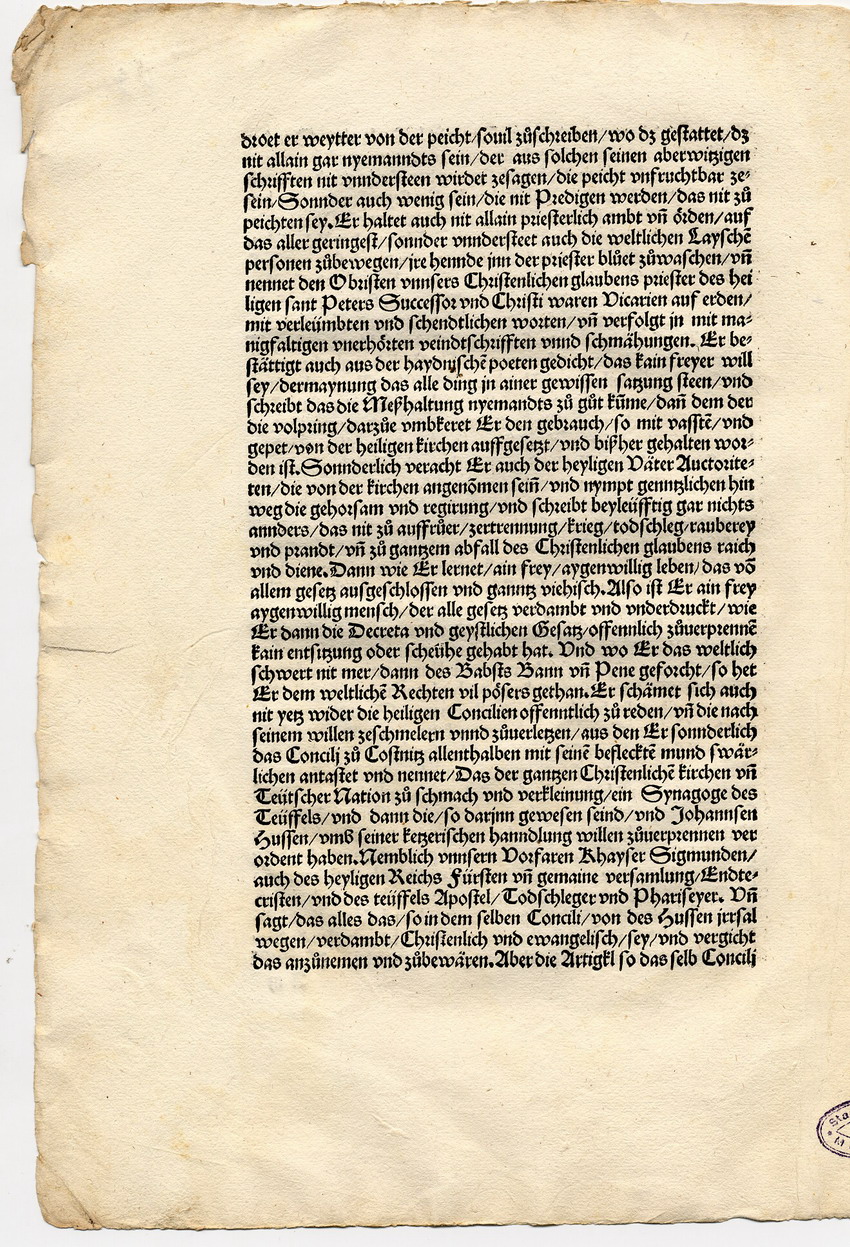 droet er weytter von der peicht/souil zůschreiben/wo dz gestattet/dz
nit allain gar nyemanndts sein/der aus solchen seinen aberwitzigen
schrifften nit vnndersteen wirdet zesagen/die peicht vnfruchtbar ze⸗
sein/Sonnder auch wenig sein/die nit Predigen werden/das nit zů
peichten sey. Er haltet auch nit allain priesterlich ambt vñ örden/auf
das aller geringest/sonnder vnndersteet auch die weltlichen Layschẽ
personen zůbewegen/jre hennde jnn der priester blůet zůwaschen/vñ
nennet den Obristen vnnsers Christenlichen glaubens priester des hei
ligen sant Peters Successor vnd Christi waren Vicarien auf erden/
mit verleümbten vnd schendtlichen worten/vñ verfolgt jn mit ma⸗
nigfaltigen vnerhörten veindtschrifften vnnd schmähungen. Er be⸗
stättigt auch aus der haydnischẽ poeten gedicht/das kain freyer will
sey/dermaynung das alle ding jn ainer gewissen satzung steen/vnd
schreibt das die Meßhaltung nyemandts zů gůt kũme/dañ dem der
die volpring/darzůe vmbkeret Er den gebrauch/so mit vasstẽ/vnd
gepet/von der heiligen kirchen auffgesetzt/vnd bißher gehalten wor⸗
den ist. Sonnderlich veracht Er auch der heyligen Väter Auctorite⸗
ten/die von der kirchen angenõmen seiñ/vnd nympt genntzlichen hin
weg die gehorsam vnd regirung/vnd schreibt beyleüfftig gar nichts
annders/das nit zů auffrůer/zertrennung/krieg/todschleg/rauberey
vnd prandt/vñ zů gantzem abfall des Christenlichen glaubens raich
vnd diene. Dann wie Er lernet/ain frey/aygenwillig leben/das võ
allem gesetz ausgeschlossen vnd ganntz viehisch. Also ist Er ain frey
aygenwillig mensch/der alle gesetz verdambt vnd vnderdruckt/wie
Er dann die Decreta vnd geystlichen Gesatz/offennlich zůuerprennẽ
kain entsitzung oder scheühe gehabt hat. Vnd wo Er das weltlich
schwert nit mer/dann des Babsts Bann vñ Pene geforcht/so het
Er dem weltlichẽ Rechten vil pösers gethan. Er schämet sich auch
nit yetz wider die heiligen Concilien offenntlich zů reden/vñ die nach
seinem willen zeschmelern vnnd zůuerletzen/aus den Er sonnderlich
das Concilj zů Costnitz allenthalben mit seinẽ beflecktẽ mund swär⸗
lichen antastet vnd nennet/Das der gantzen Christenlichẽ kirchen vñ
Teütscher Nation zů schmach vnd verkleinung/ein Synagoge des
Teüffels/vnd dann die/so darjnn gewesen seind/vnd Johannsen
Hussen/vmb seiner ketzerischen hanndlung willen zůuerprennen ver
ordent haben. Nemblich vnnsern Vorfaren Khayser Sigmunden/
auch des heyligen Reichs Fürsten vñ gemaine versamlung/Endte⸗
cristen/vnd des teüffels Apostel/Todschleger vnd Phariseyer. Vñ
sagt/das alles das/so in dem selben Concili/von des Hussen jrrsal
wegen/verdambt/Christenlich vnd ewangelisch/sey/vnd vergicht
das anzůnemen vnd zůbewären. Aber die Artigkl so das selb Concilj